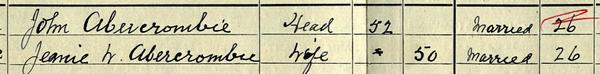 John Abercrombie Head 52 Married 26
Jeanie W. Abercrombie Wife - 50 Married 26